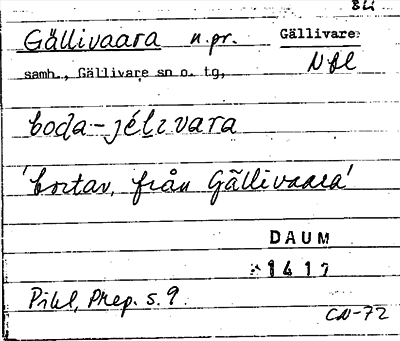 Gällivaara n.pr. Gällivare
samh., Gällivare sn o. tg, Nbl
boda-jélivara
'bortav, från Gällivaara'
DAUM
1417
Pihl, Prep. s. 9.
CN-72